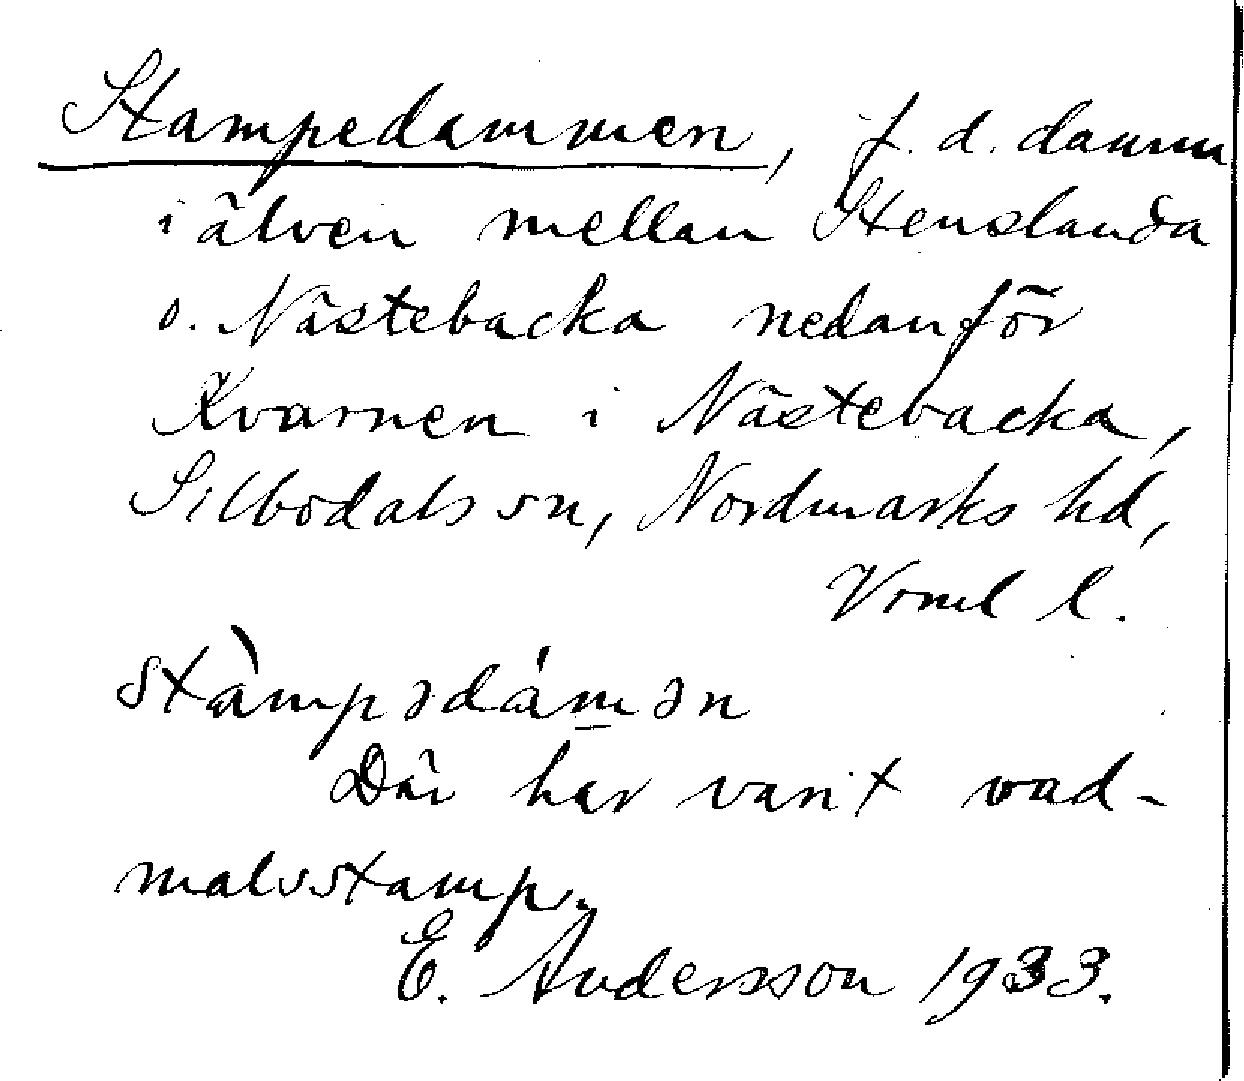 Stampedammen, f. d. damm
i älven mellan Stenslanda
o. Nästebacka nedanför
Kvarnen i Nästebacka,
Silbodals sn, Nordmarks hd,
Vrml l.
stàmpədám̲ən
Där har varit vad-
malsstamp.
E. Andersson 1933.